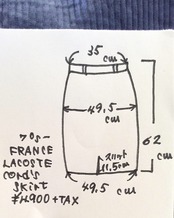 35
cm
49.5
cm
62
cm
スリット
11.5cm
49.5
cm
70s-
FRANCE
LACOSTE
CORD'S
SKIRT
¥4,900+TAX